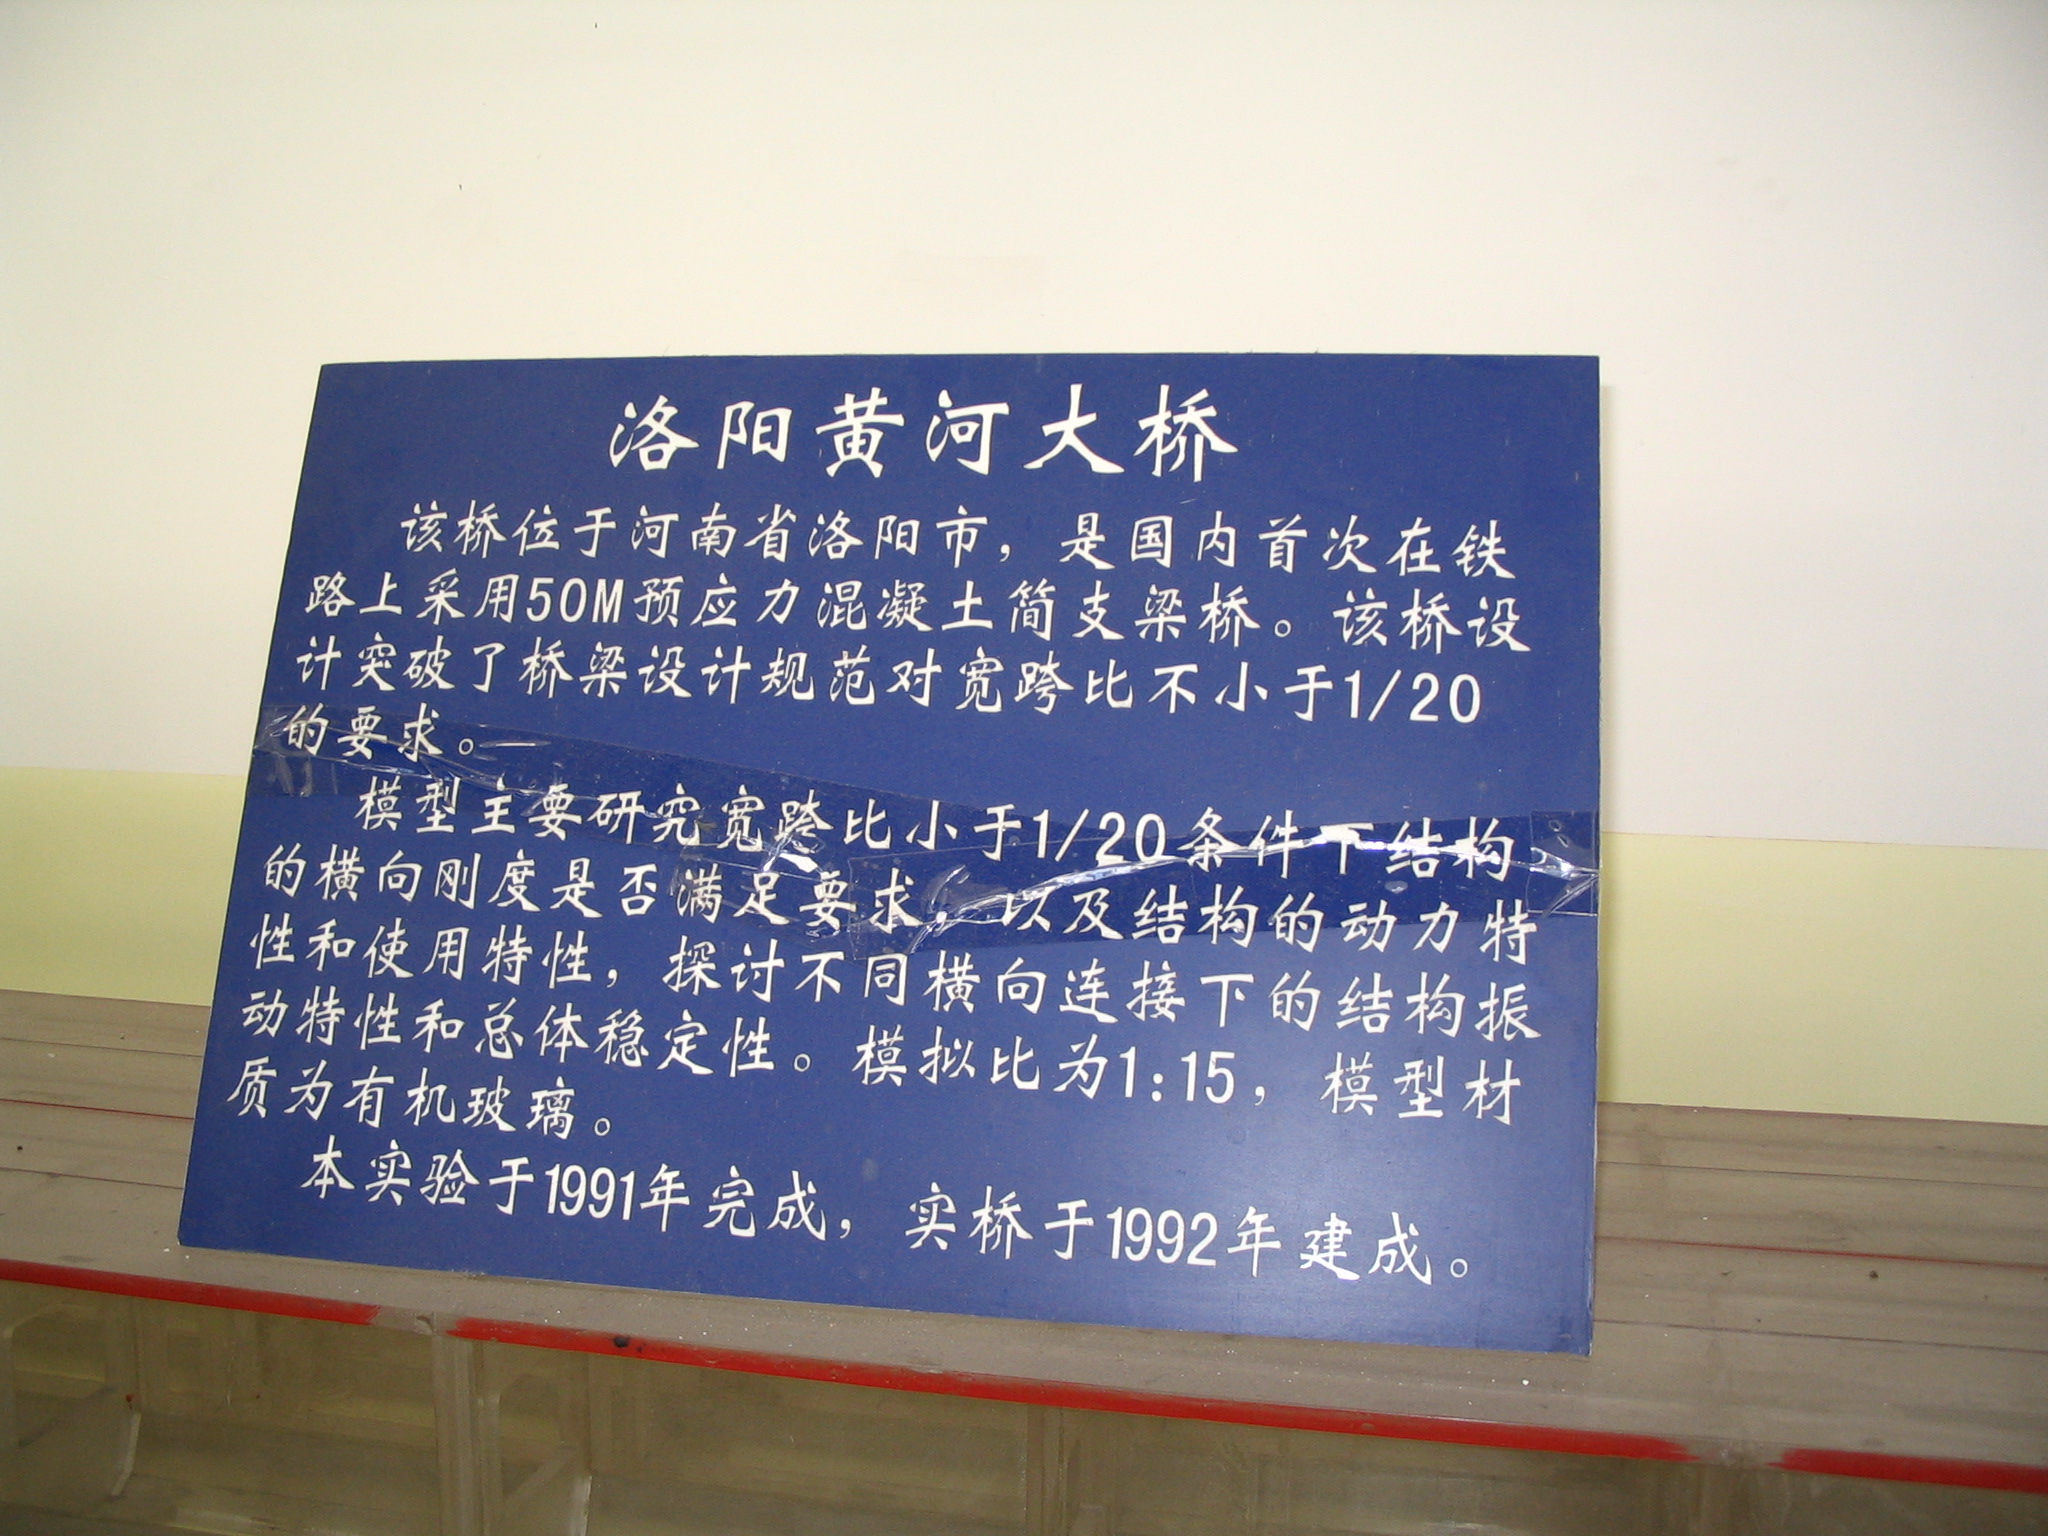 洛阳黄河大桥
该桥位于河南省洛阳市，是国内首次在铁
路上采用50M预应力混凝土简支梁桥。该桥设
计突破了桥梁设计规范对宽跨比不小于1/20
的要求。
模型主要研究宽跨比小于1/20条件下结构
的横向刚度是否满足要求，以及结构的动力特
性和使用特性，探讨不同横向连接下的结构振
动特性和总体稳定性。模拟比为1:15，模型材
质为有机玻璃。
本实验于1991年完成，实桥于1992年建成。